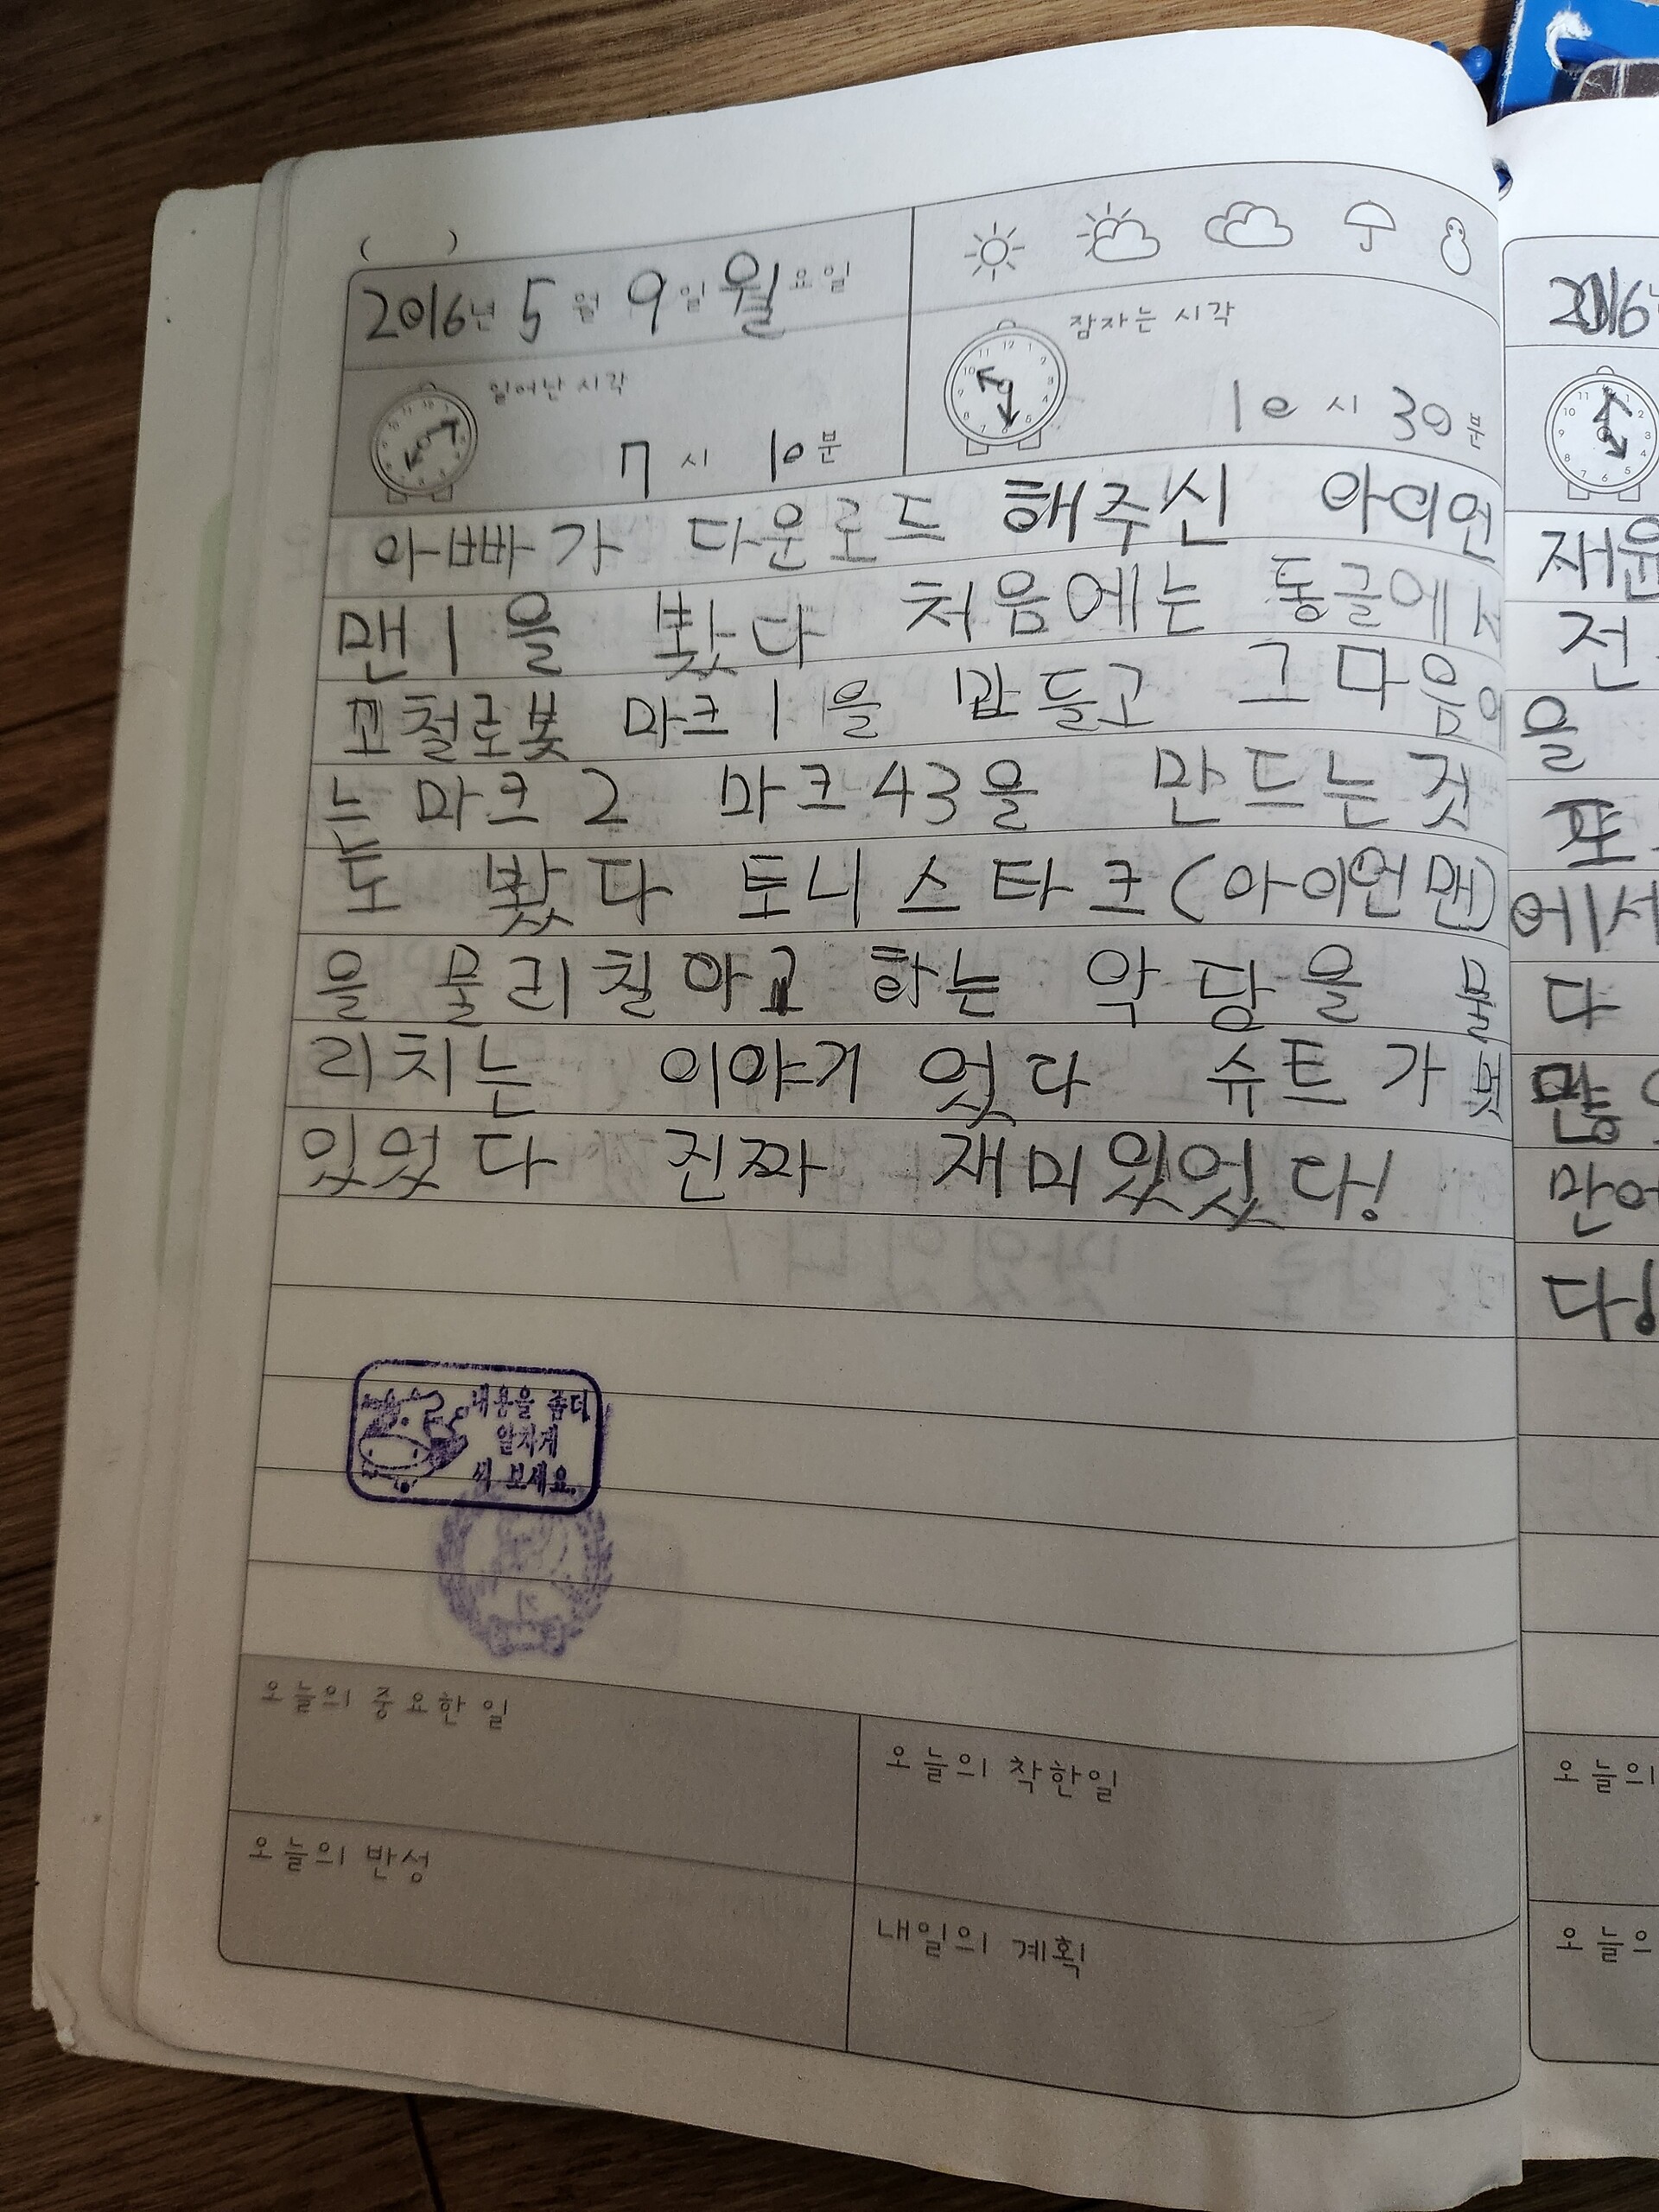 (    )
2016년 5월 9일 월요일
일어난 시각
7시 10분
잠자는 시각
10시 30분
아빠가 다운로드 해주신 아이언
맨1을 봤다 처음에는 동글에서
고철로봇 마크1을 만들고 그다음에
는 마크2 마크43을 만드는것
도 봤다 토니스타크(아이언맨)
을 물리칠아고 하는 악당을 물
리치는 이야기 었다 슈트가 멋
있었다 진짜 재미있었다!
내용을 좀더
알차게
써 보세요.
오늘의 중요한 일
오늘의 착한일
오늘의 반성
내일의 계획
2016
재윤
전
을
포
에서
다
많
만어
다!
오늘의